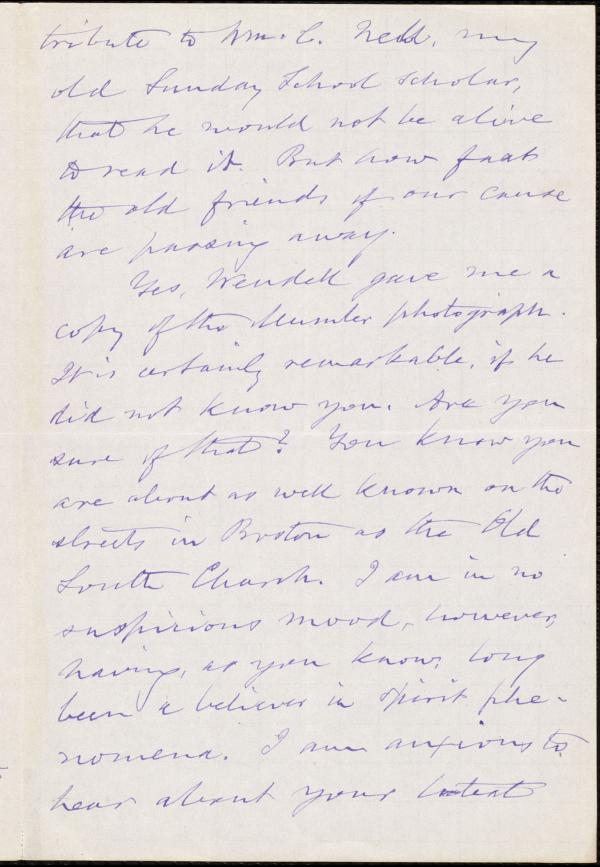 tribute to Wm. C. Nell, my
old Sunday School scholar,
that he would not be alive
to read it. But how fast
the old friends of our cause
are passing away.
Yes, Wendell gave me a
copy of the Mumler photograph.
It is certainly remarkable, if he
did not know you. Are you
sure of that? You know you
are about as well known on the
streets in Boston as the Old
South Church. I am in no
suspicious mood, however,
having, as you know, long
been a believer in spirit phe-
nomena. I am anxious to
hear about your latest